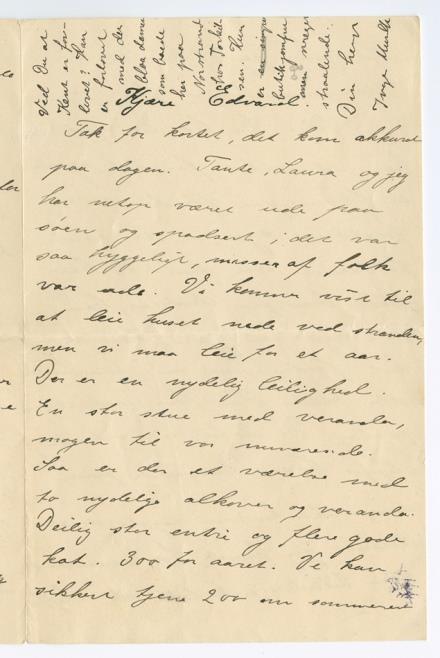 Kjære Edvard.
Tak for kortet, det kom akkurat
paa dagen. Tante, Laura og jeg
har netop været ude paa
søen og spadsert i det var
saa hyggeligt, masser af folk
var ude. Vi kommer vist til
at leie huset nede ved stranden,
men vi maa leie for et aar.
Der er en nydelig leilighed.
En stor stue med veranda,
magen til vor nuværende.
Saa er der et værelse med
to nydelige alkover og veranda.
Deilig stor entre og flere gode
kot. 300 for aaret. Vi kan
sikkert tjene 200 om sommeren
Ved Du at
Knut er for-
lovet? Han
er forlovet
med den
blaa dame
som boede
her paa
Norstrand
hos Torkil
sen. Hun
er en
butikjomfru
men
straalende.
Din hero
Inga